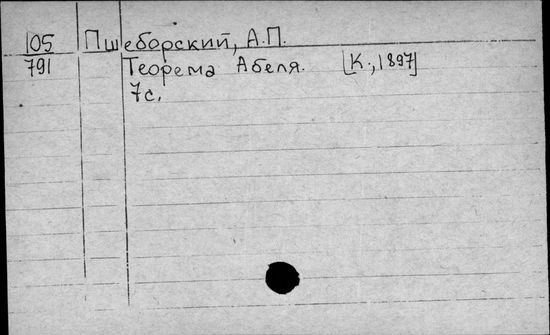 105 Пшеборский, А.П.
791 Теорема Абеля. [К., 1897]
7с.